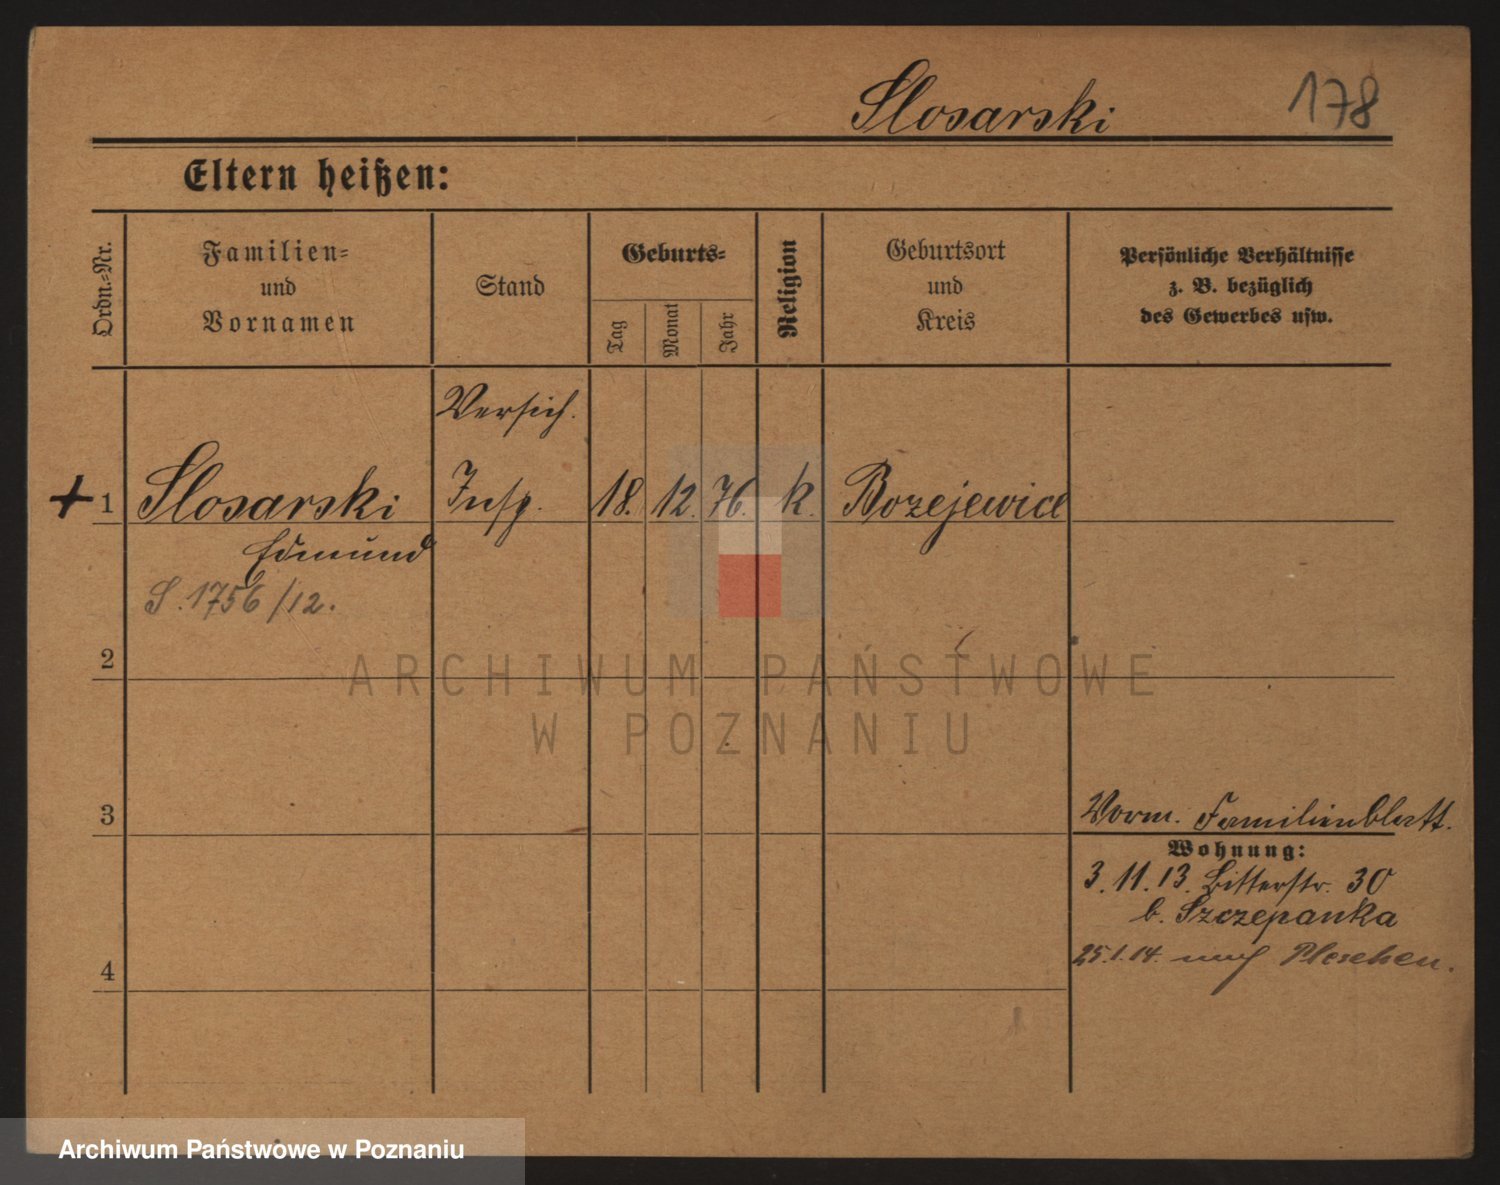 Slosarski 178
Eltern heißen:
Ordn.-Nr.
Familien-
und
Vornamen
Stand
Geburts-
Tag
Monat
Jahr
Religion
Geburtsort
und
Kreis
Persönliche Verhältnisse
z. B. bezüglich
des Gewerbes usw.
Versich.
+ 1 Slosarski Insp. 18. 12. 76. k. Bozejewice
Edmund
S. 1756/12.
2
ARCHIWUM PAŃSTWOWE
W POZNANIU
3
Vorm. Familienblatt.
Wohnung:
3. 11. 13. Bitterstr. 30
b. Szczepanka
25.1.14. nach Pleschen.
4
Archiwum Państwowe w Poznaniu